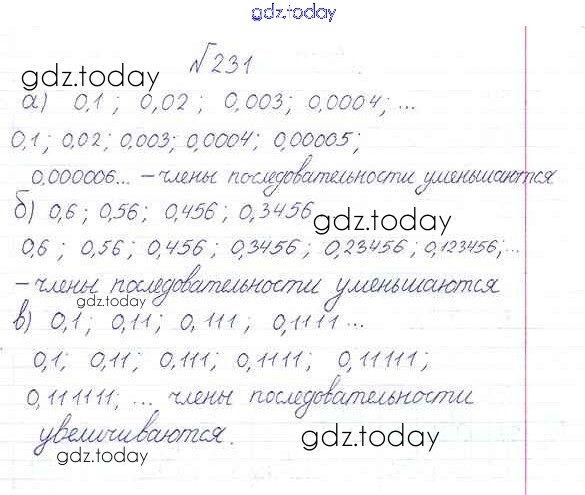 gdz.today
№231
gdz.today
а) 0,1; 0,02; 0,003; 0,0004; ...
0,1; 0,02; 0,003; 0,0004; 0,00005;
0,000006... – члены последовательности уменьшаются
б) 0,6; 0,56; 0,456; 0,3456
gdz.today
0,6; 0,56; 0,456; 0,3456; 0,23456; 0,123456;...
– члены последовательности уменьшаются
gdz.today
в) 0,1; 0,11; 0,111; 0,1111...
0,1; 0,11; 0,111; 0,1111; 0,11111;
0,111111; ... члены последовательности
увеличиваются.
gdz.today
gdz.today